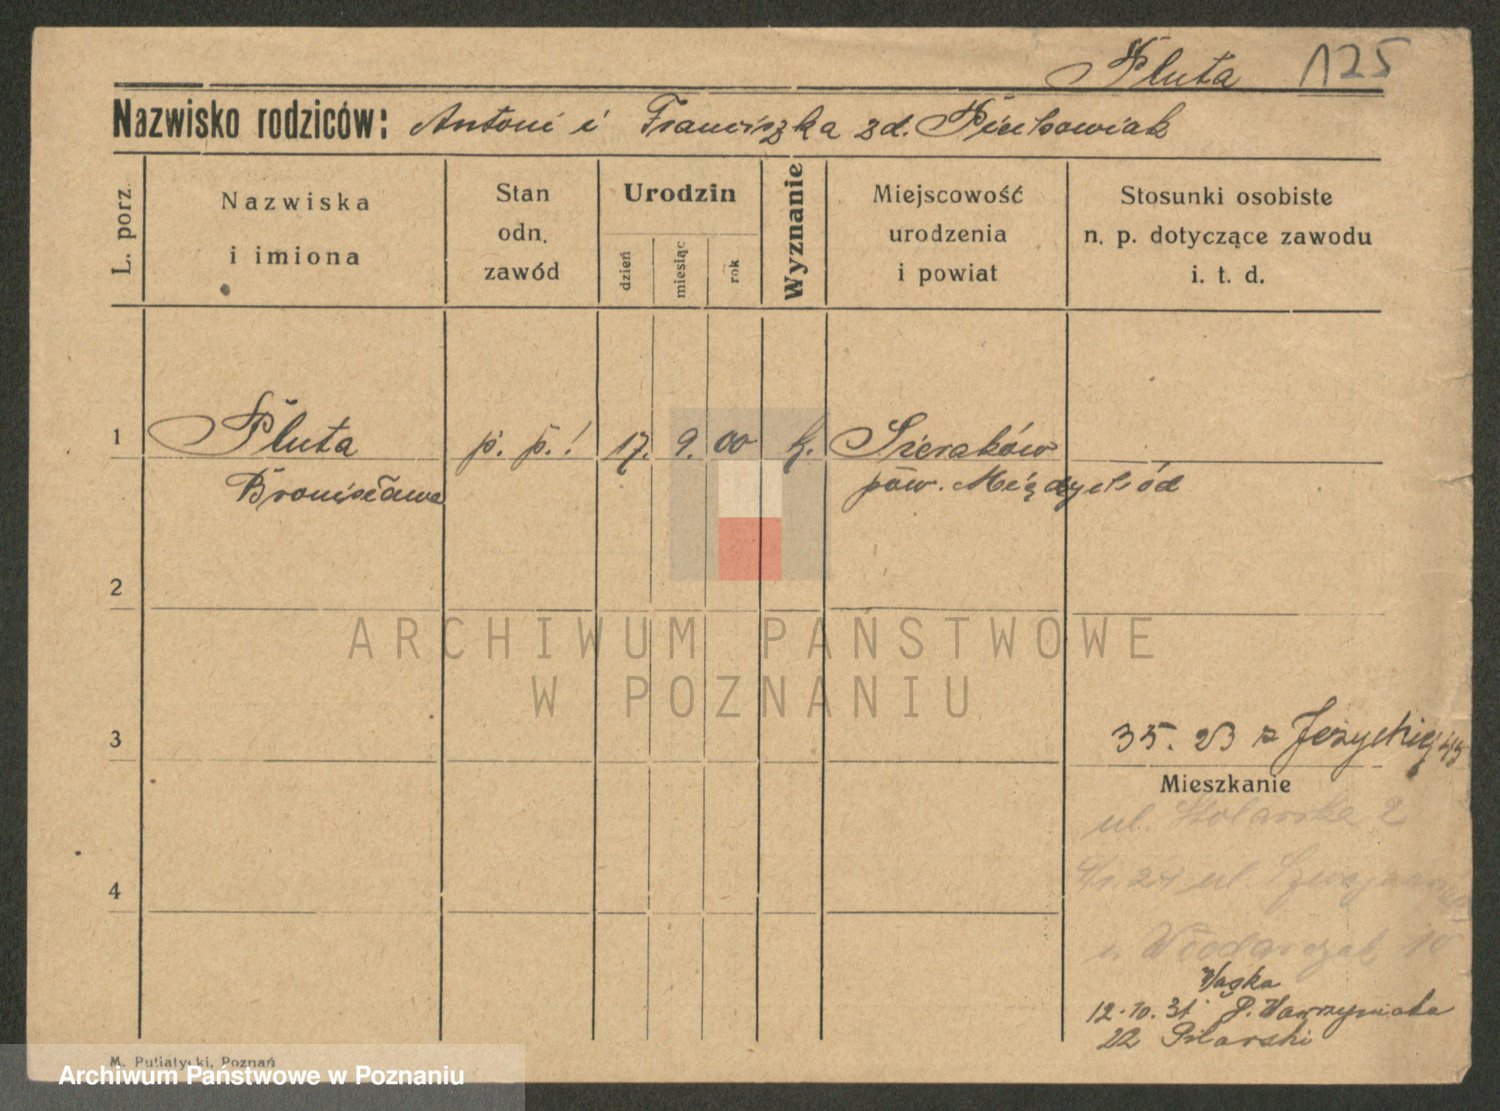 Pluta 125
Nazwisko rodziców: Antoni i Franciszka zd. Piechowiak
L. porz.
Nazwiska
i imiona
Stan
odn.
zawód
Urodzin
dzień
miesiąc
rok
Wyznanie
Miejscowość
urodzenia
i powiat
Stosunki osobiste
n. p. dotyczące zawodu
i. t. d.
1 Pluta p. p.! 17. 9. 00 k. Sieraków
Bronisława pow. Międzychód
2
ARCHIWUM PAŃSTWOWE
W POZNANIU
3
35. 23 z Jeżyckiej 45
Mieszkanie
ul. Stolarska 2
24 ul.
4
u Włodarczak 10
12.10.31
22
M. Putiatycki, Poznań
Archiwum Państwowe w Poznaniu